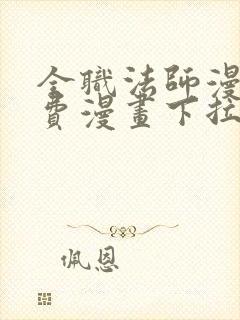 全職法師漫
費漫畫下拉
佩恩